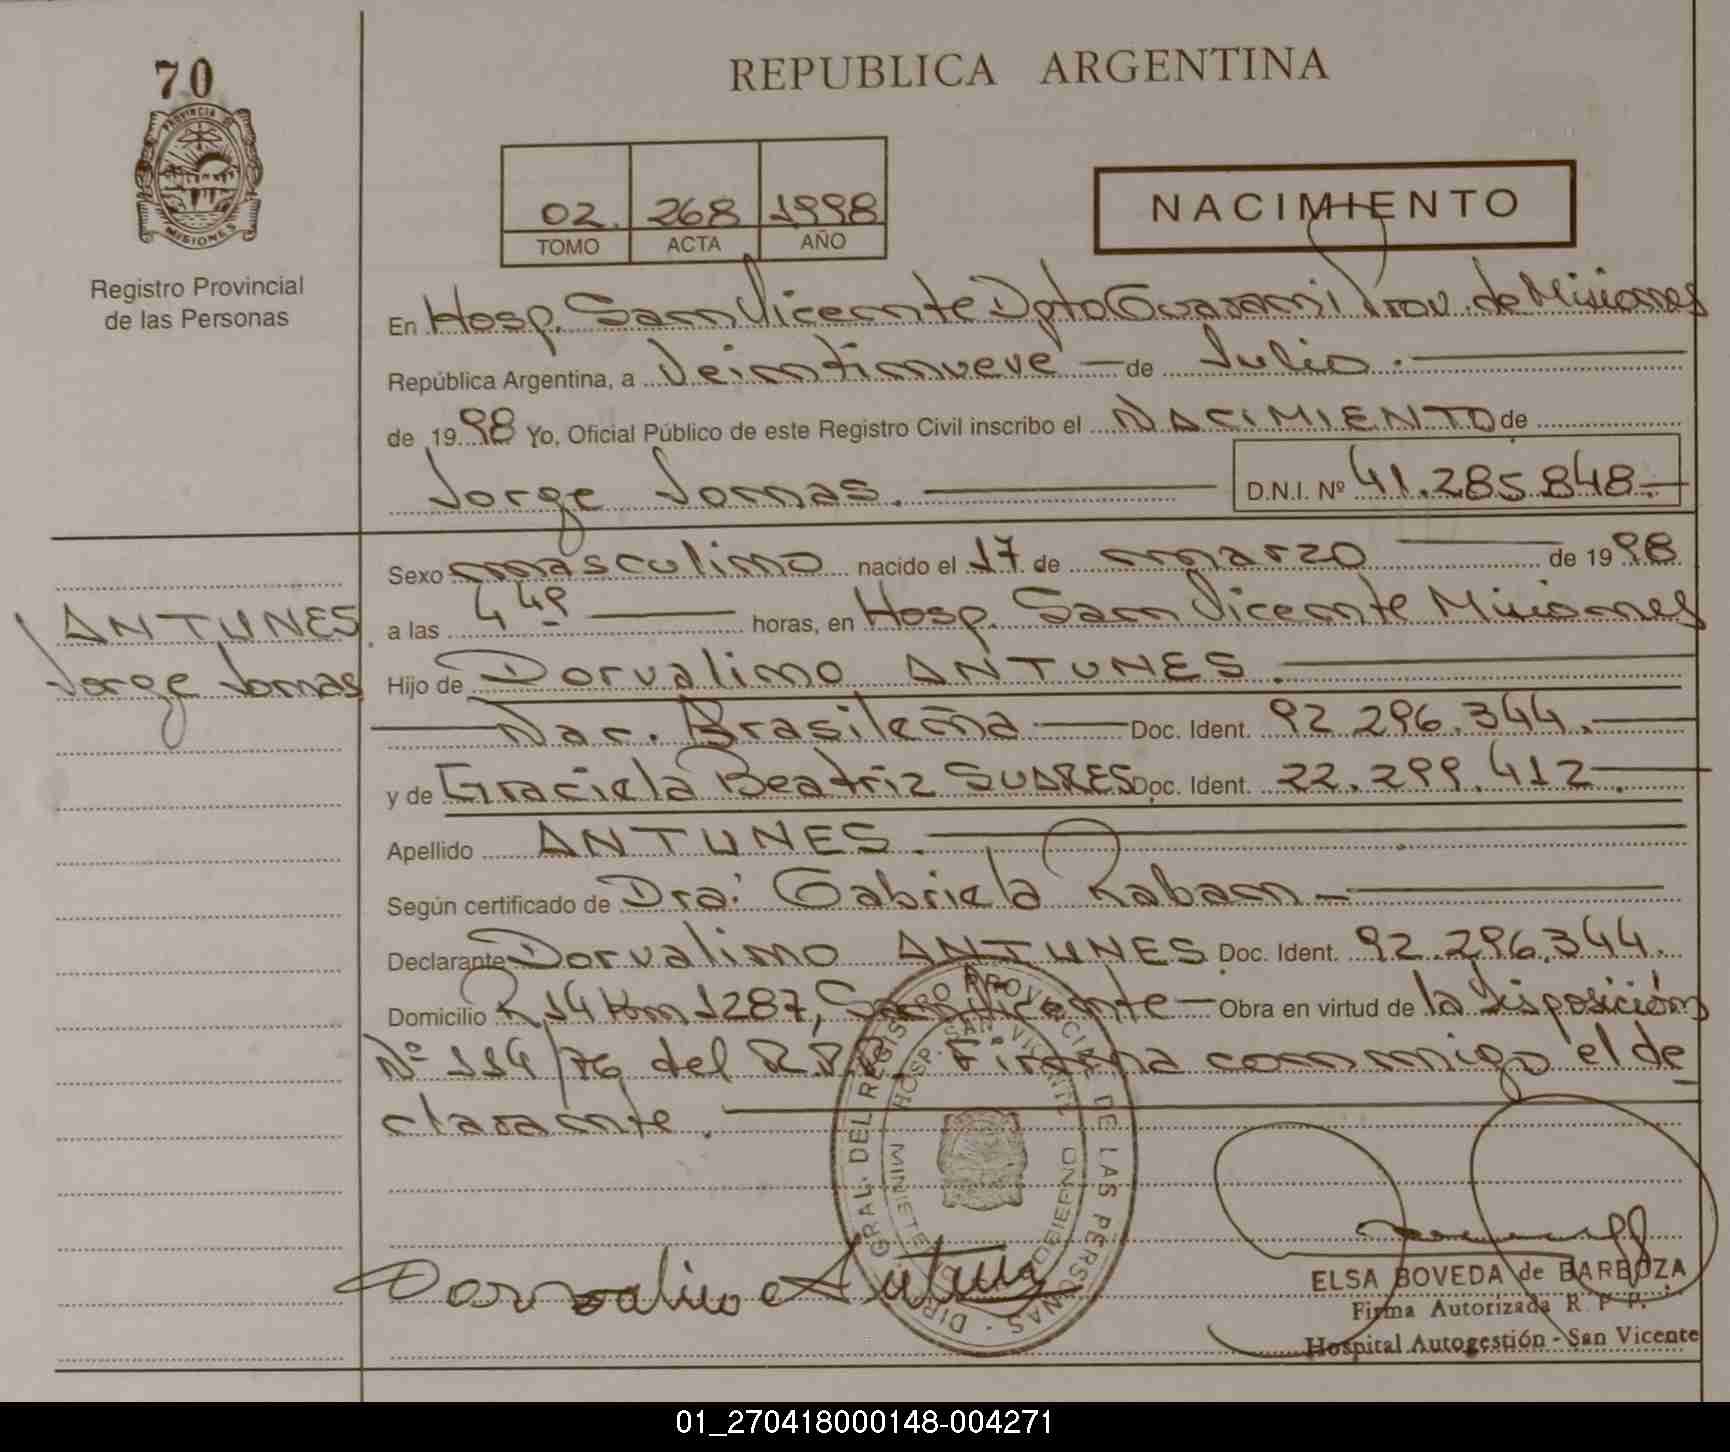 70
PROVINCIA DE
MISIONES
Registro Provincial
de las Personas
REPUBLICA ARGENTINA
02. 268 1998
TOMO ACTA AÑO
NACIMIENTO
En Hosp. San Vicente Dpto Guarani Prov. de Misiones
República Argentina, a Veintinueve — de Julio.
de 1998 Yo, Oficial Público de este Registro Civil inscribo el NACIMIENTO de
Jorge Jonas. D.N.I. Nº 41.285.848.-
Sexo masculino nacido el 17 de marzo de 1998
ANTUNES
Jorge Jonas
a las 4 49 horas, en Hosp. San Vicente Misiones
Hijo de Dorvalino ANTUNES.
Nac. Brasileña — Doc. Ident. 92.296.344.
y de Graciela Beatriz SUARES Doc. Ident. 22.299.412.
Apellido ANTUNES.
Según certificado de Dra: Gabriela Raban -
Declarante Dorvalino ANTUNES Doc. Ident. 92.296.344.
Domicilio R 14 Km 1287, San Vicente — Obra en virtud de la Disposición
Nº 114/76 del R.P.P. Firma conmigo el de
clarante.
DIR. GRAL. DEL REGISTRO PROVINCIAL DE LAS PERSONAS -
HOSP. SAN VICENTE
Dorvalino Antunes
ELSA BOVEDA de BARBOZA
Firma Autorizada R. P. P.
Hospital Autogestión - San Vicente
01_270418000148-004271